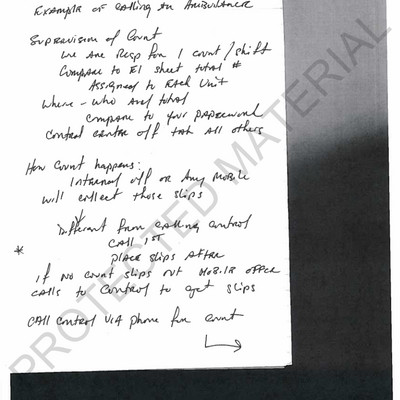 Example of calling an Ambulance
Supervision of Count
We Are Resp for 1 count/shift
Compare to E1 sheet total #
Assigned to Each Unit
Where - Who and total
compare to your paperwork
Control centre off tak all others
How Count happens:
Internal off or Any Mobile
will collect those slips
Different from calling control
* Call 1st
place slips After
if no count slips out Mobile officer
calls to Control to get slips
Call control VIA phone for count
PROTECTED MATERIAL